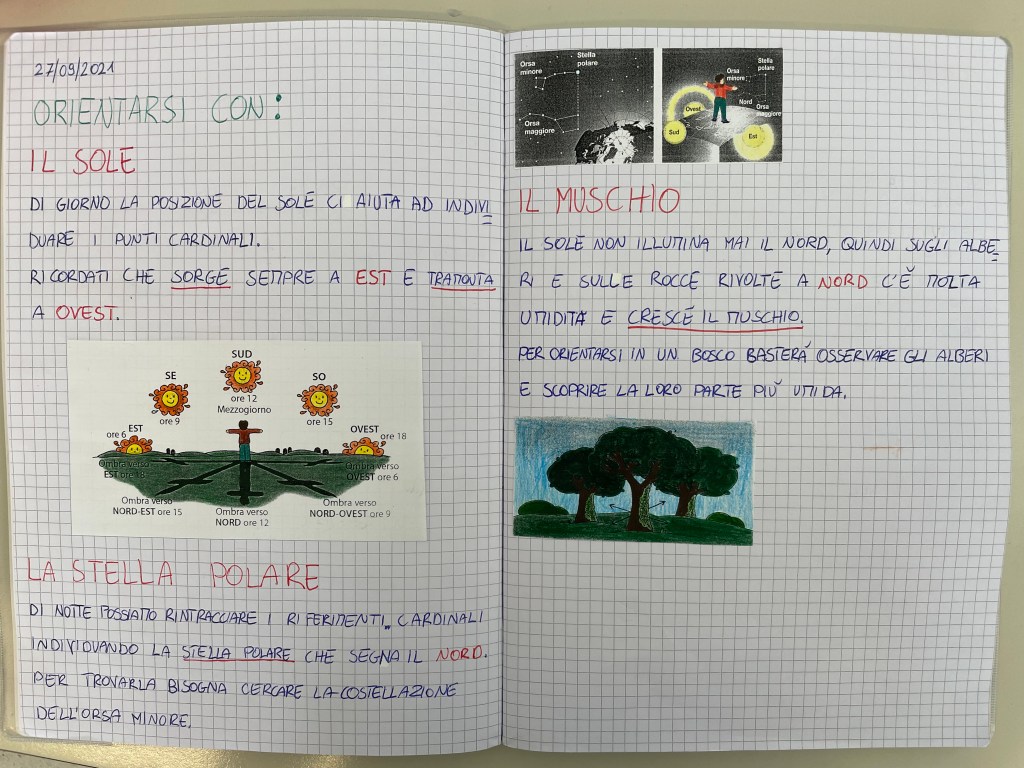 27/09/2021
ORIENTARSI CON:
IL SOLE
DI GIORNO LA POSIZIONE DEL SOLE CI AIUTA AD INDIVI
DUARE I PUNTI CARDINALI.
RICORDATI CHE SORGE SEMPRE A EST E TRAMONTA
A OVEST.
SUD
SE
ore 12
SO
ore 9
Mezzogiorno
ore 15
ore 6 EST
OVEST
ore 18
Ombra verso
EST ore
Ombra verso
OVEST ore 6
Ombra verso
NORD-EST ore 15
Ombra verso
NORD ore 12
Ombra verso
NORD-OVEST ore 9
LA STELLA POLARE
DI NOTTE POSSIAMO RINTRACCIARE I RIFERIMENTI CARDINALI
INDIVIDUANDO LA STELLA POLARE CHE SEGNA IL NORD.
PER TROVARLA BISOGNA CERCARE LA COSTELLAZIONE
DELL'ORSA MINORE.
Orsa
minore
Stella
polare
Orsa
maggiore
Stella
polare
Orsa
minore
Nord
Orsa
maggiore
Ovest
Sud
Est
IL MUSCHIO
IL SOLE NON ILLUMINA MAI IL NORD, QUINDI SUGLI ALBE
RI E SULLE ROCCE RIVOLTE A NORD C'È MOLTA
UMIDITÀ E CRESCE IL MUSCHIO.
PER ORIENTARSI IN UN BOSCO BASTERÀ OSSERVARE GLI ALBERI
E SCOPRIRE LA LORO PARTE PIÙ UMIDA.